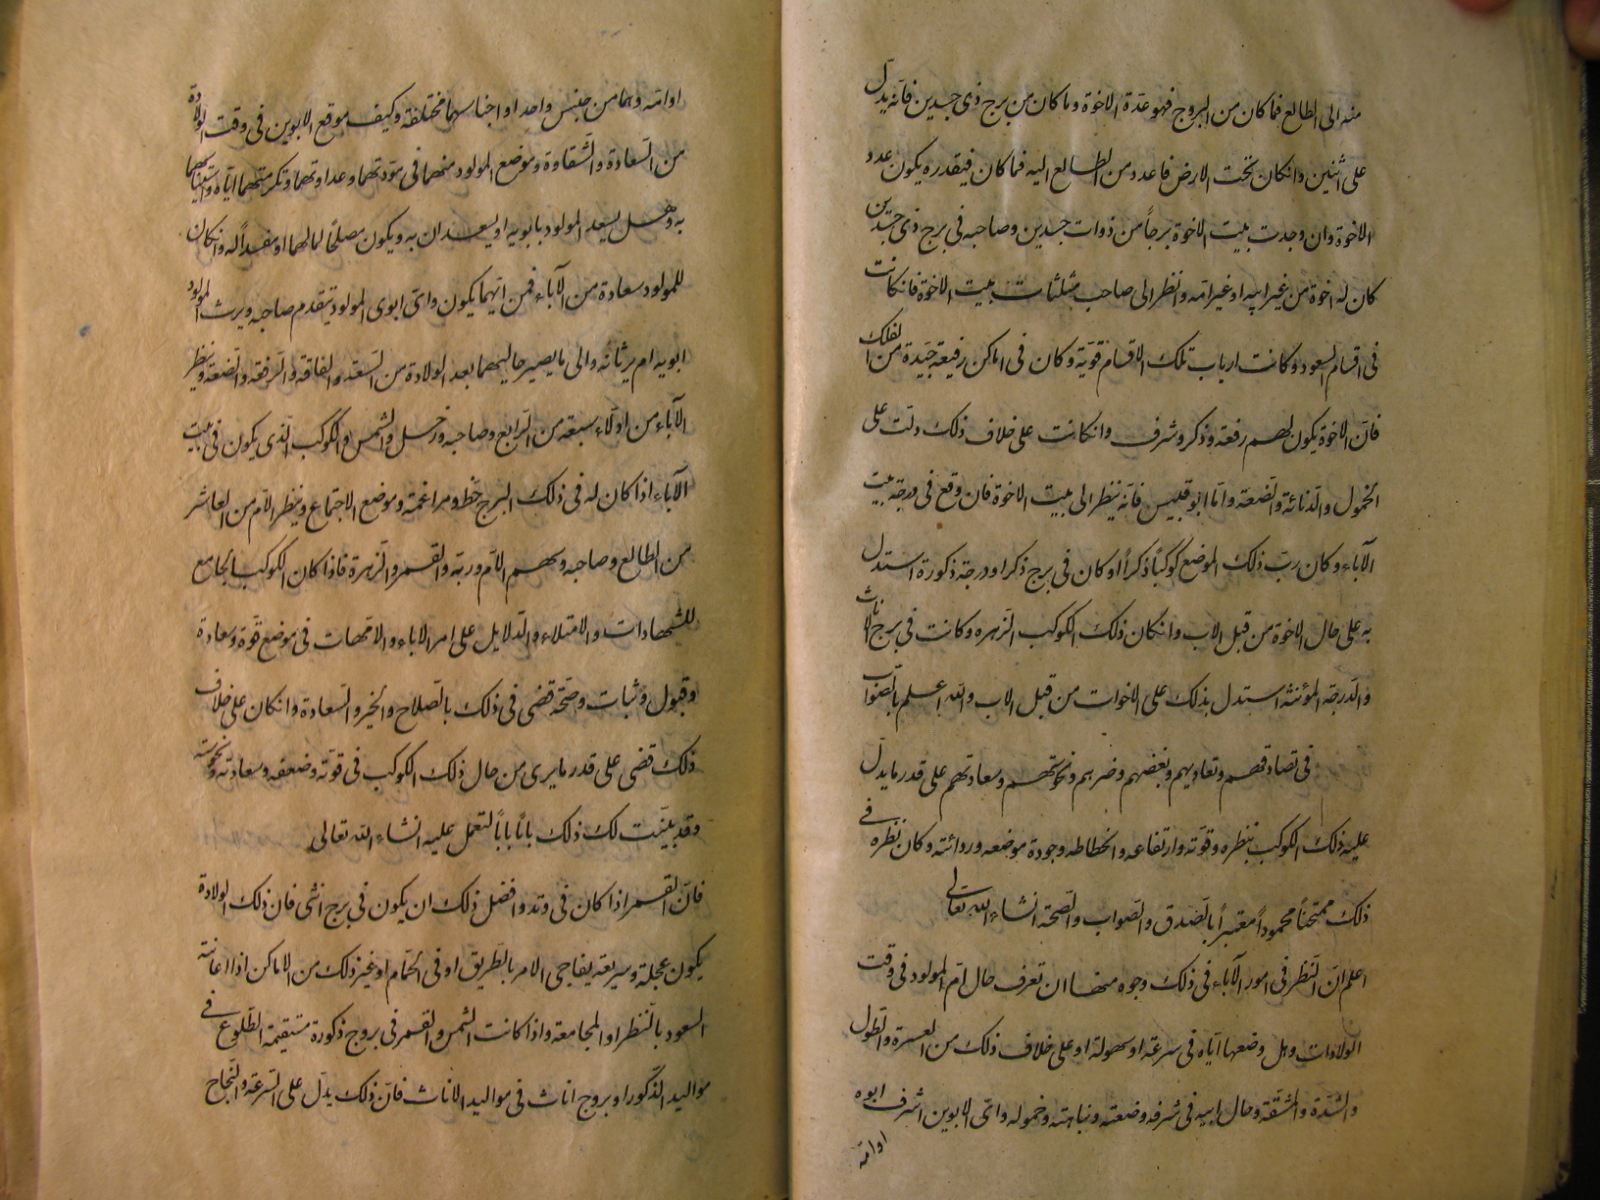 منه الى الطالع فما كان من البروج فهو عدة الاخوة وما كان من برج ذى جسدين فانه يدل
على اثنين وانكان تحت الارض فاعدد من الطالع اليه فما كان فبقدره يكون عدد
الاخوة وان وجدت بيت الاخوة برجاً من ذوات جسدين وصاحبه فى برج ذى جسدين
كان له اخوة من غير ابيه او غير امه وانظر الى صاحب مثلثات بيت الاخوة فانكانت
فى اقسام السعود وكانت ارباب تلك الاقسام قوية وكان فى اماكن رفيعة جيدة من الفلك
فان الاخوة يكون لهم رفعة وذكر وشرف وانكانت على خلاف ذلك دلت على
الخمول والدنائة والضعة واما ابو قبيس فانه ينظر الى بيت الاخوة فان وقع فى درجة بيت
الآباء وكان رب ذلك الموضع كوكباً ذكراً او كان فى برج ذكر او درجة ذكورة استدل
به على حال الاخوة من قبل الاب وانكان ذلك الكوكب الزهره وكانت فى برج الاناث
والدرجة المؤنثة استدل بذلك على الاخوات من قبل الاب والله اعلم بالصواب
فى تصادقهم وتعاديهم وبغضهم وضرهم ونحوستهم وسعادتهم على قدر ما يدل
عليه ذلك الكوكب بنظره وقوته وارتفاعه وانحطاطه وجودة موضعه وردائته وكان نظره فى
ذلك ممتحناً محموداً معتبراً بالصدق والصواب والصحة انشاء الله تعالى
اعلم ان النظر فى امور الآباء فى ذلك وجوه منها ان تعرف حال ام المولود فى وقت
الولادات وهل وضعها اياه فى سرعة او سهولة او على خلاف ذلك من العسرة والطول
والشدة والمشقة وحال ابيه فى شرفه وضعته ونباهته وخموله واى الابوين اشرف ابوه
او امه
او امه وهما من جنس واحد او اجناسهما مختلفة وكيف موقع الابوين فى وقت الولادة
من السعادة والشقاوة وموضع المولود منهما فى مودتهما وعداوتهما وتكرمتهما اياه واستيناسهما
به وهل يسعد المولود بابويه او يسعدان به ويكون مصلحاً لمالهما او مفسداً له وانكان
للمولود سعادة من الآباء فمن ايهما يكون واى ابوى المولود يتقدم صاحبه ويرث المولود
ابويه ام يرثانه والى ما يصير حاليهما بعد الولادة من السعة والفاقة والرفعة والضعة وينظر
الآباء من اولاء سبعة من الرابع وصاحبه وزحل والشمس والكوكب الذى يكون فى بيت
الآباء اذا كان له فى ذلك البرج حظ ومزاعمة وموضع الاجتماع وينظر الام من العاشر
من الطالع وصاحبه وسهم الام وربه والقمر والزهرة فاذا كان الكوكب الجامع
للشهادات والامتلاء والدلايل على امر الاباء والامهات فى موضع قوة وسعادة
وقبول وثبات وصحة قضى فى ذلك بالصلاح والخير والسعادة وانكان على خلاف
ذلك قضى على قدر ما يرى من حال ذلك الكوكب فى قوته وضعفه وسعادته ونحوسته
وقد بينت لك ذلك باباً باباً لتعمل عليه انشاء الله تعالى
فان القمر اذا كان فى وتد وافضل ذلك ان يكون فى برج انثى فان ذلك الولادة
يكون عجلة وسريعة يفاجى الامر بالطريق او فى الحمام او غير ذلك من الاماكن اذا اعانته
السعود بالنظر او المجامعة واذا كانت الشمس والقمر فى بروج ذكورة مستقيمة الطلوع فى
مواليد الذكور او بروج اناث فى مواليد الاناث فان ذلك يدل على السرعة والنجاح